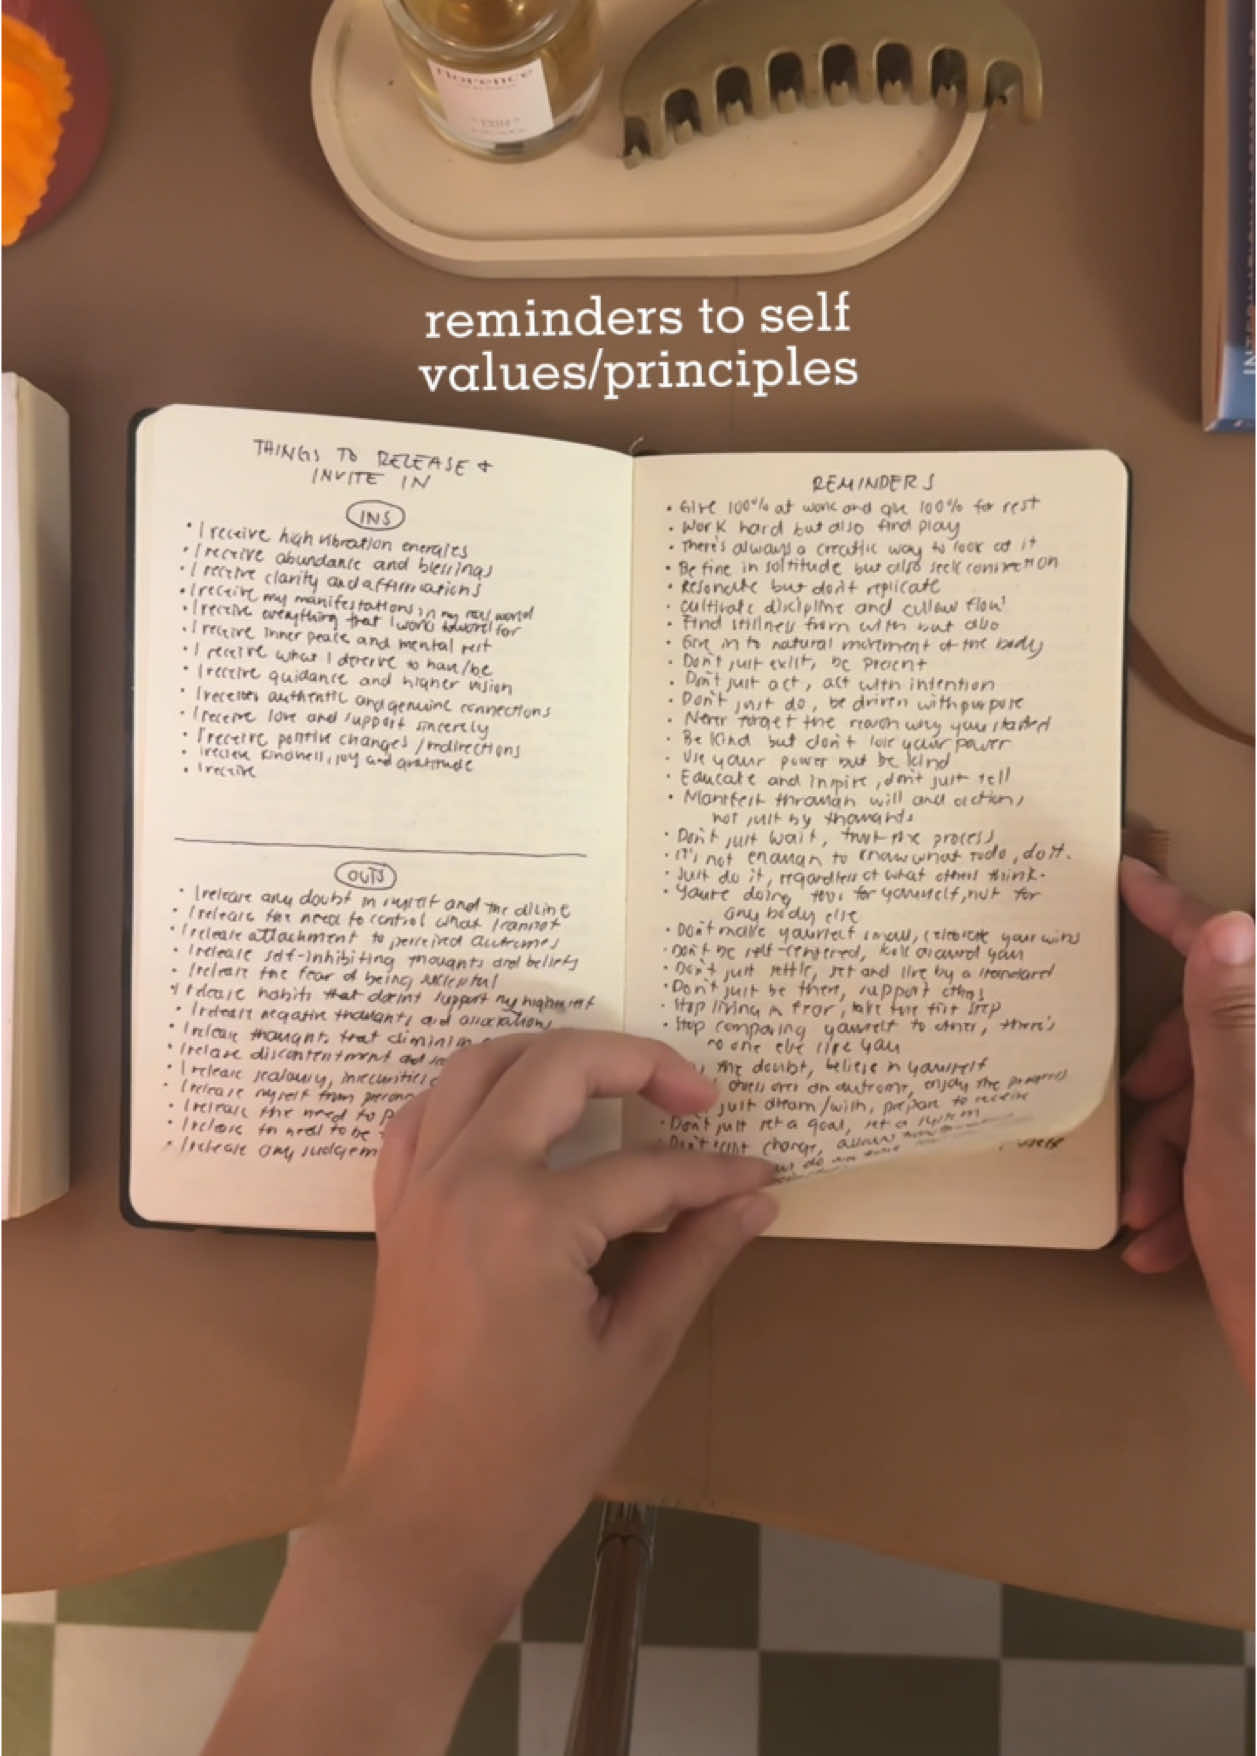 florence
reminders to self
values/principles
THINGS TO RELEASE +
INVITE IN
INS
• I receive high vibration energies
• I receive abundance and blessings
• I receive clarity and affirmations
• I receive my manifestations in my real world
• I receive everything that I work toward for
• I receive inner peace and mental rest
• I receive what I deserve to have/be
• I receive guidance and higher vision
• I receive authentic and genuine connections
• I receive love and support sincerely
• I receive positive changes/redirections
• I receive kindness, joy and gratitude
• I receive
OUTS
• I release any doubt in myself and the divine
• I release the need to control what I cannot
• I release attachment to perceived outcomes
• I release self-inhibiting thoughts and beliefs
• I release the fear of being successful
• I release habits that doesnt support my highest self
• I release negative thoughts and associations
• I release thoughts that diminish
• I release discontentment and
• I release jealousy, insecurities
• I release myself from
• I release the need to p
• I release the need to be
• I release any judgem
REMINDERS
• Give 100% at work and give 100% for rest
• Work hard but also find play
• There's always a creative way to look at it
• Be fine in solitude but also seek connection
• Resonate but don't replicate
• Cultivate discipline and allow flow
• Find stillness from with but also
• Give in to natural movement of the body
• Don't just exist, be present
• Don't just act, act with intention
• Don't just do, be driven with purpose
• Never forget the reason why you started
• Be kind but don't lose your power
• Use your power but be kind
• Educate and inspire, don't just tell
• Manifest through will and actions,
not just by thoughts
• Don't just wait, trust the process
• It's not enough to know what to do, do it.
• Just do it, regardless of what others think.
• You're doing this for yourself, not for
anybody else
• Don't make yourself small, celebrate your wins
• Don't be self-centered, look around you
• Don't just settle, set and live by a standard
• Don't just be there, support others
• Stop living in fear, take the first step
• Stop comparing yourself to others, there's
no one else like you
the doubt, believe in yourself
over an outcome, enjoy the progress
just dream/wish, prepare to receive
• Don't just set a goal, set a system
• Don't change, allow